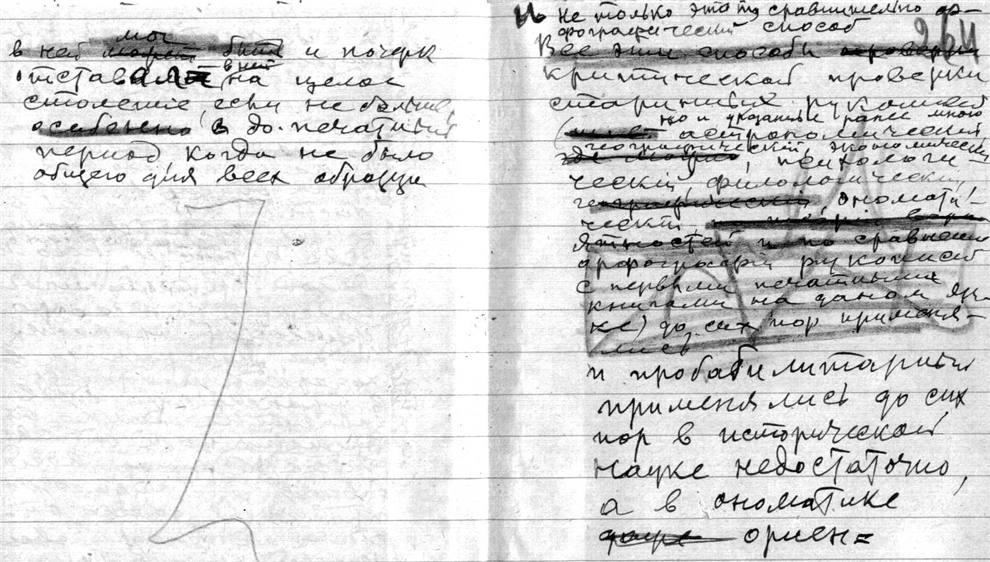 мог
в ней может быть и почерк
отставать в ней на целое
столетие, если не больше,
особенно в до-печатный
период, когда не было
общего для всех образца
И не только этот сравнительно ор-
фографический способ
264
Все эти способы проверки
критической проверки
старинных рукописей
но и указанные ранее мною
астрономический,
географический, экономический
психологи-
ческий, филологический,
географический, ономати-
ческий, теории веро-
ятностей и по сравнению
орфографии рукописей
с первыми печатными
книгами на даном язы-
ке) до сих пор применя-
лись
и пробабилитарный
применялись до сих
пор в исторической
науке недостаточно,
а в ономатике
ориен=